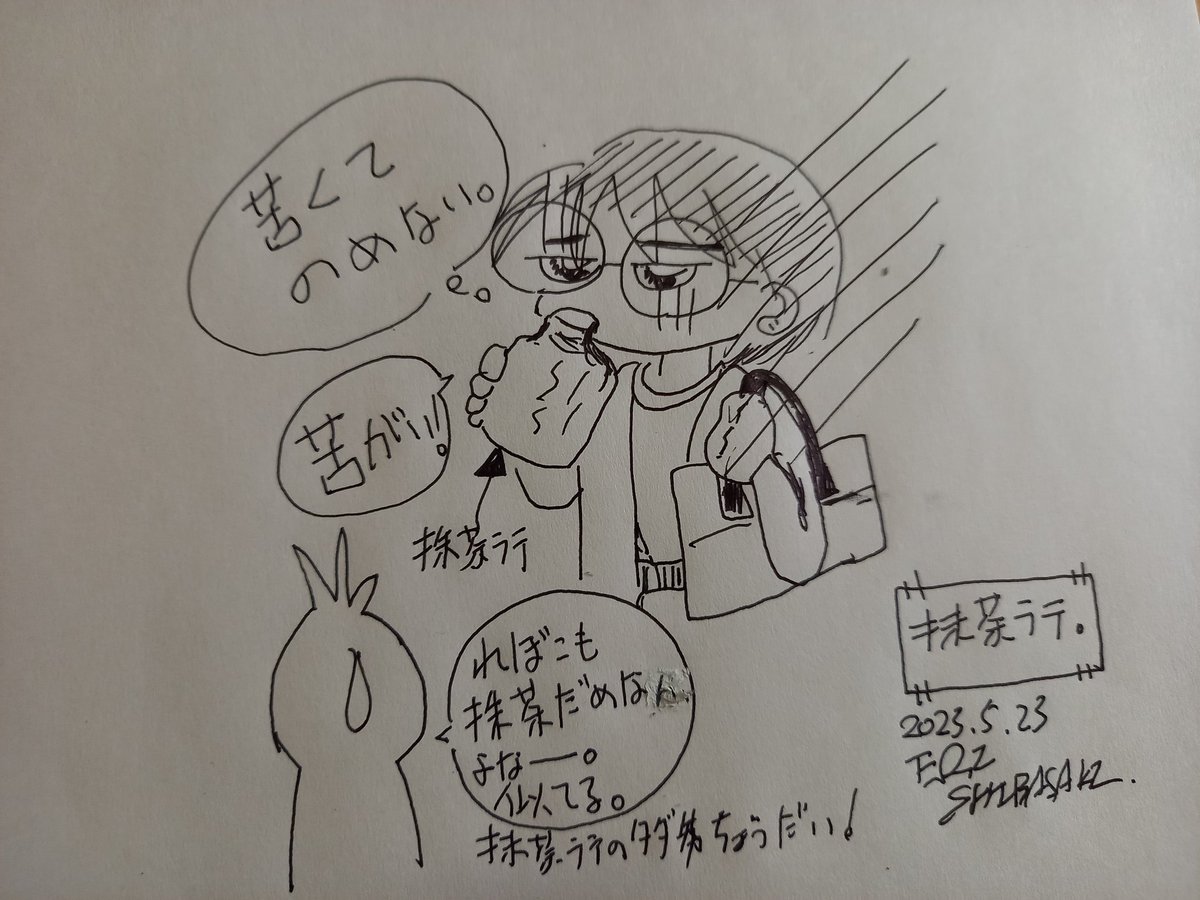 苦くて
のめない。
苦がい!!
抹茶ラテ
れぼこも
抹茶だめなん
よなー。
似てる。
抹茶ラテのタダ券ちょうだい!
抹茶ラテ。
2023.5.23
SHIBASAKI.